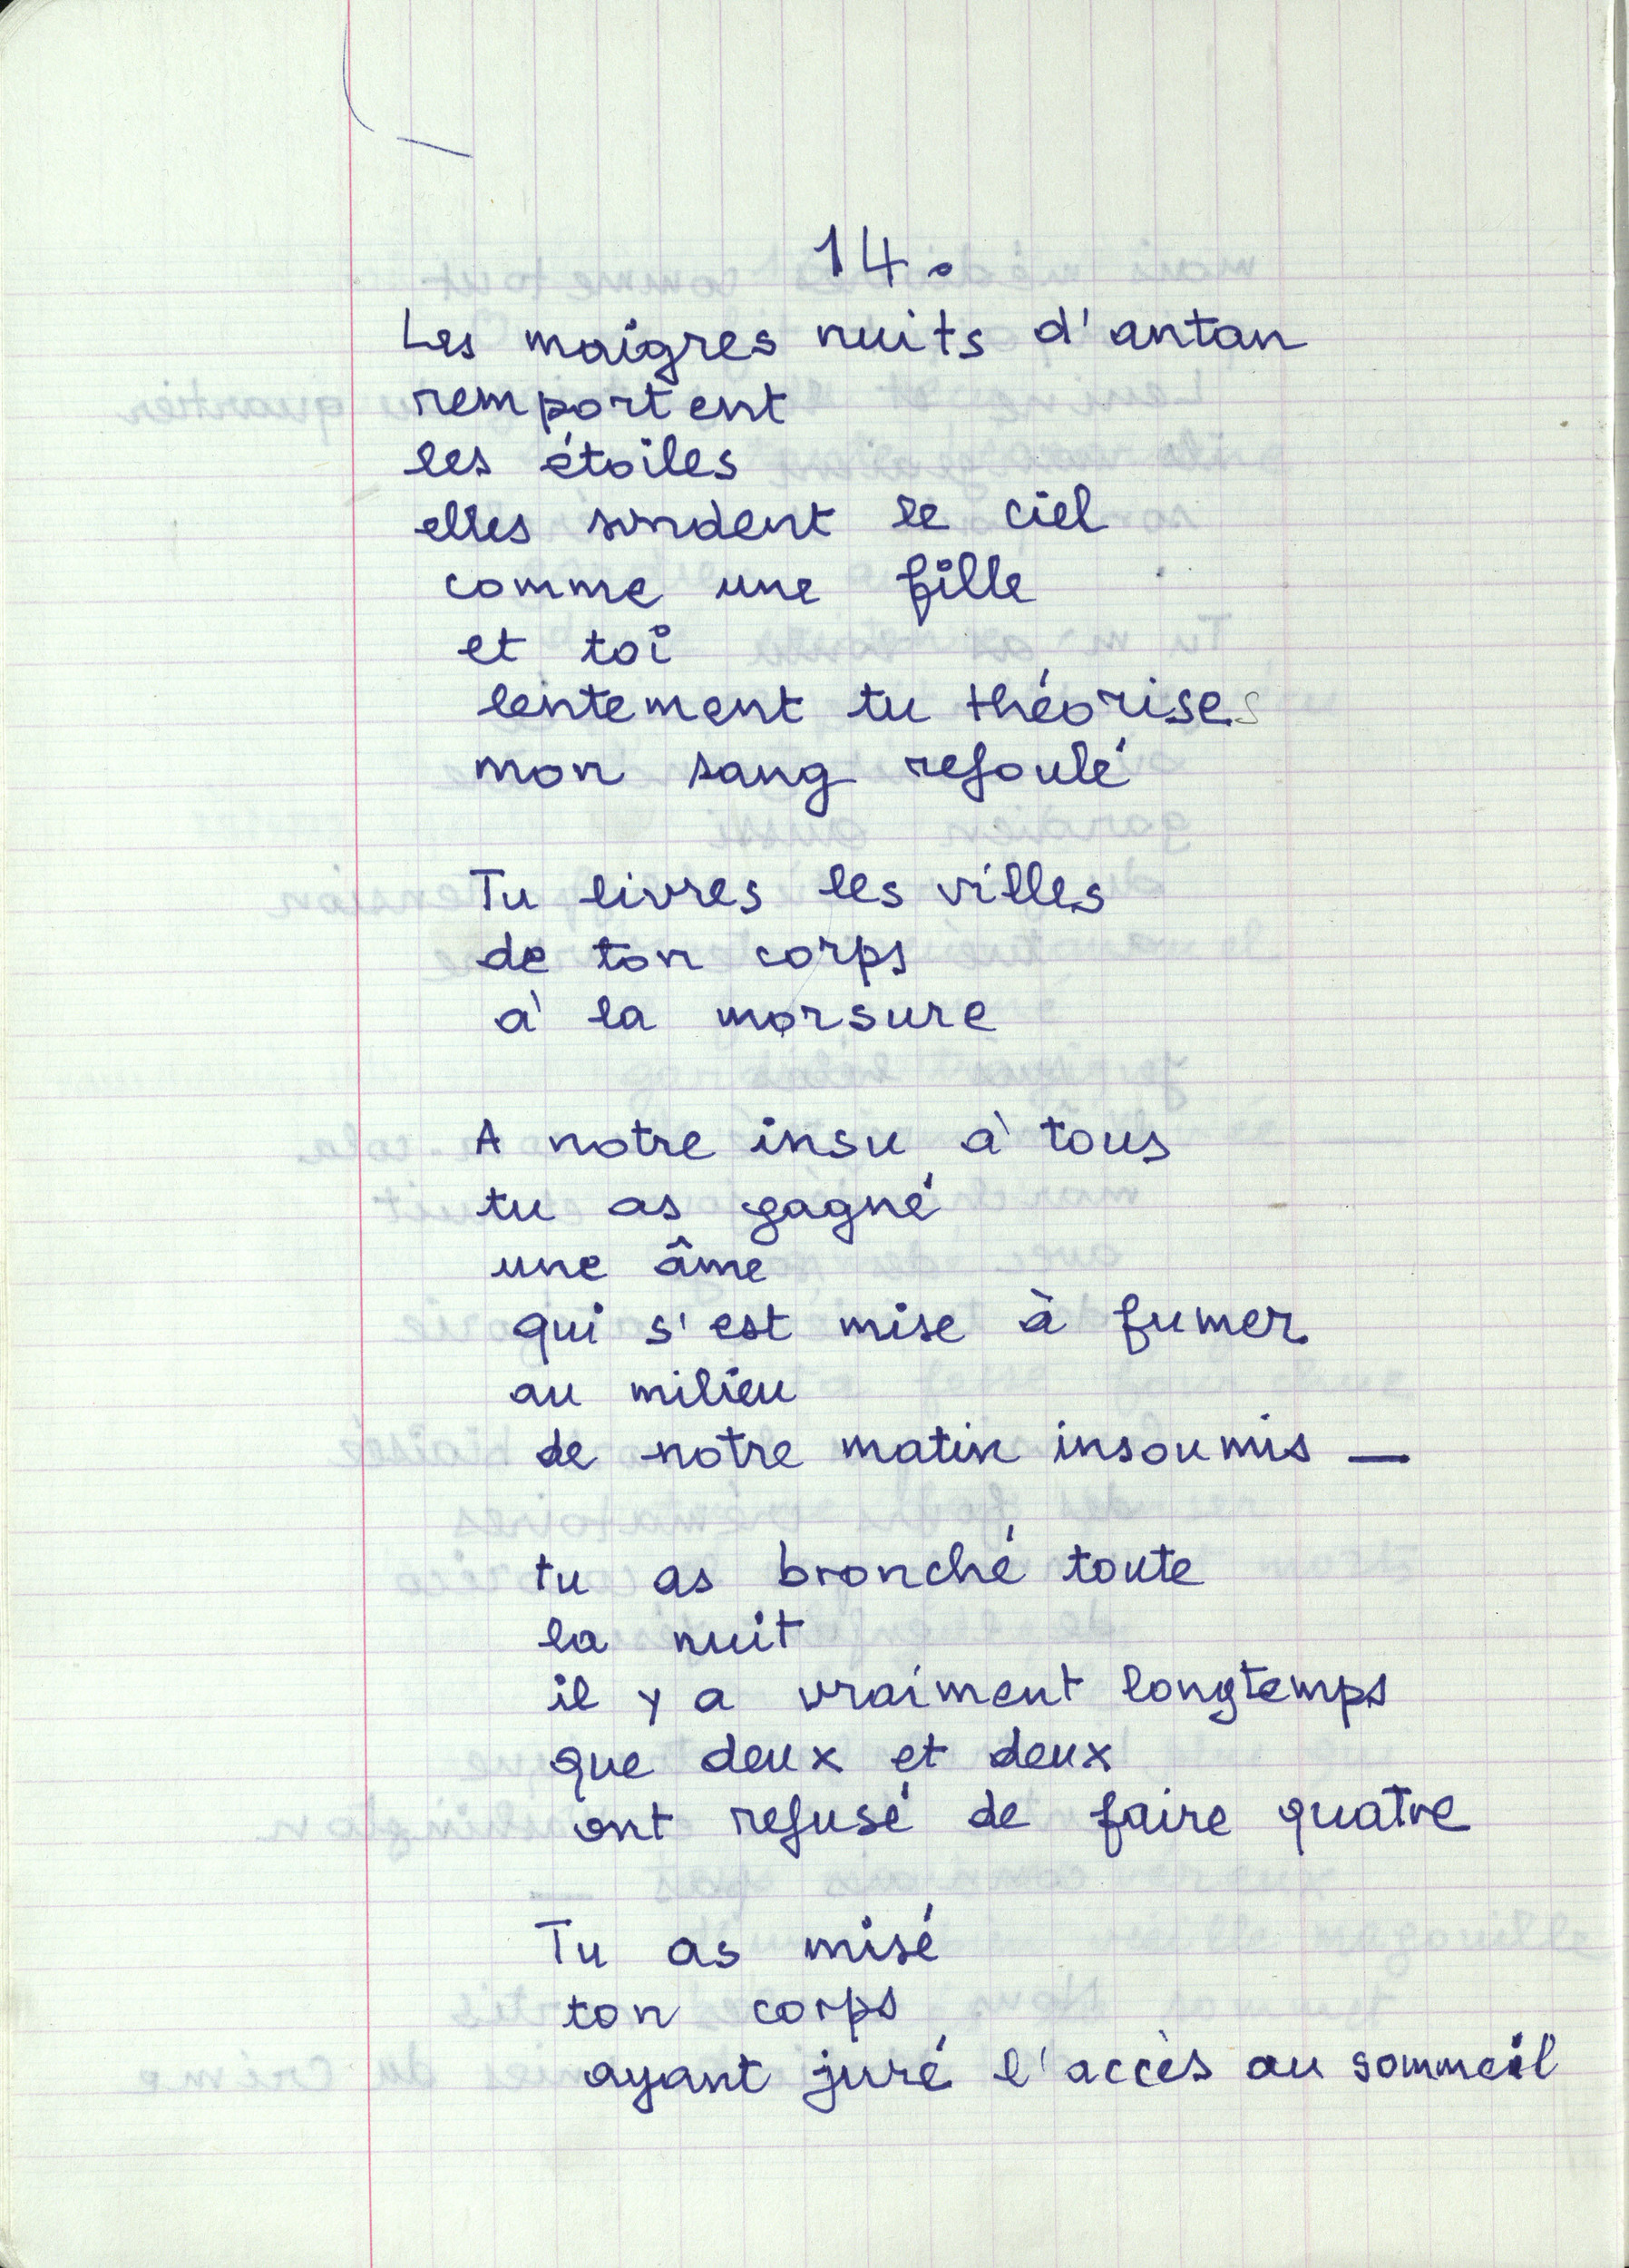 14.
Les maigres nuits d'antan
remportent
les étoiles
elles sondent le ciel
comme une fille
et toi
lentement tu théorises
mon sang refoulé
Tu livres les villes
de ton corps
à la morsure
A notre insu à tous
tu as gagné
une âme
qui s'est mise à fumer
au milieu
de notre matin insoumis —
tu as bronché toute
la nuit
il y a vraiment longtemps
que deux et deux
ont refusé de faire quatre
Tu as misé
ton corps
ayant juré l'accès au sommeil